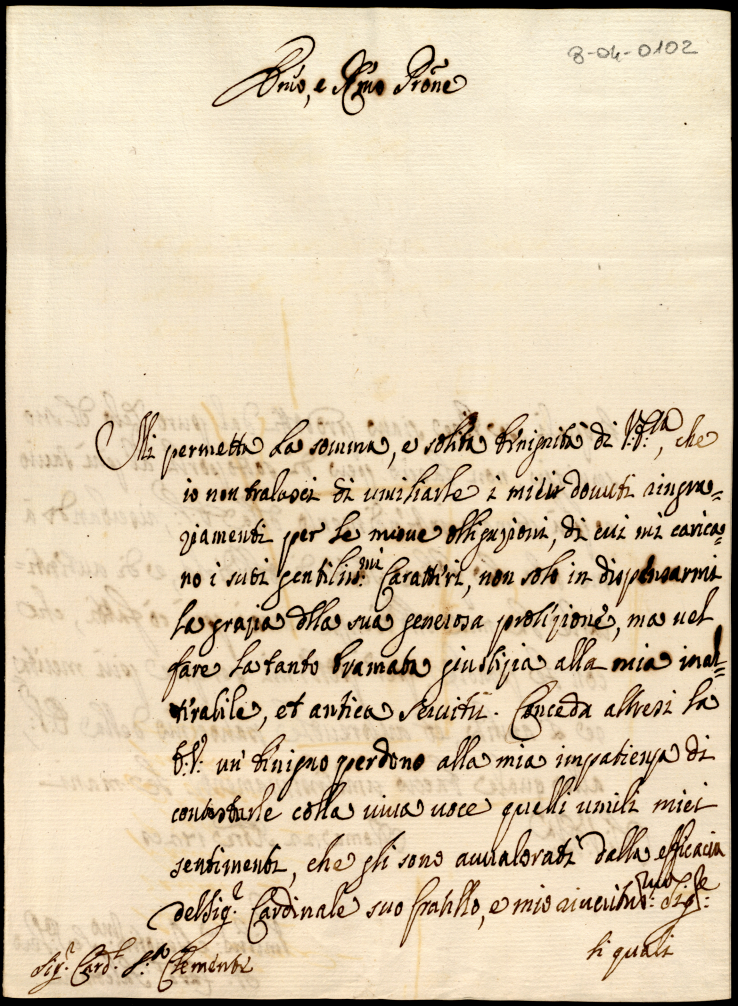 8-04-0102
Emo, e Rmo Prone
Mi permetta la somma, e solita benignità di V.Em.za, che
io non tralasci di umiliarle i miei dovuti ringra=
ziamenti per le nuove obligazioni, di cui mi carica=
no i suoi gentiliss.mi Caratteri, non solo in dispensarmi
la grazia della sua generosa protezione, ma nel
fare la tanto bramata giustizia alla mia inal=
terabile, et antica servitù. Conceda altresi la
E.V. un benigno perdono alla mia impatienza di
contestarle colla viva voce quelli umili miei
sentimenti, che gli sono avvalorati dalla efficacia
del Sig.r Cardinale suo fratello, e mio riveritiss.mo Sig.re:
li quali
Sig.r Card.l S.n Clemente